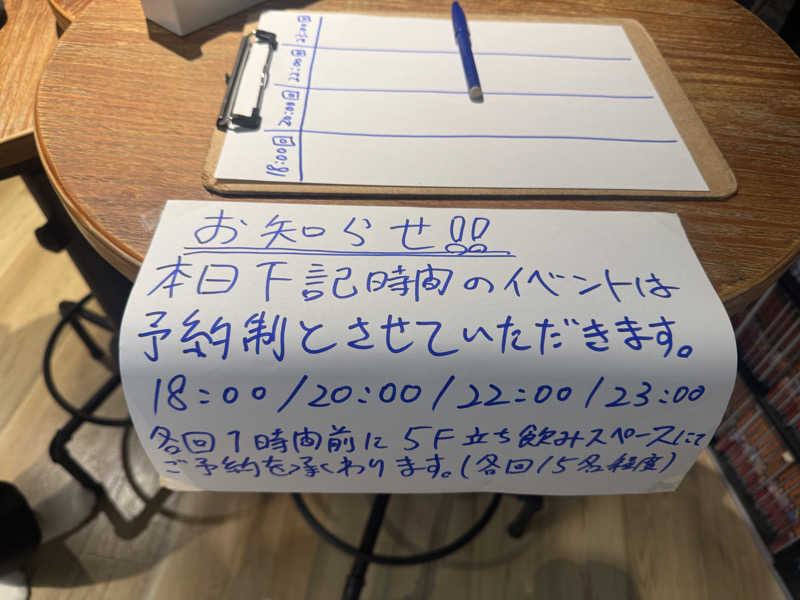 23:00回
22:00回
20:00回
18:00回
お知らせ!!
本日下記時間のイベントは
予約制とさせていただきます。
18:00/20:00/22:00/23:00
各回1時間前に5F立ち飲みスペースにて
ご予約を承くわります。(各回15名程度)